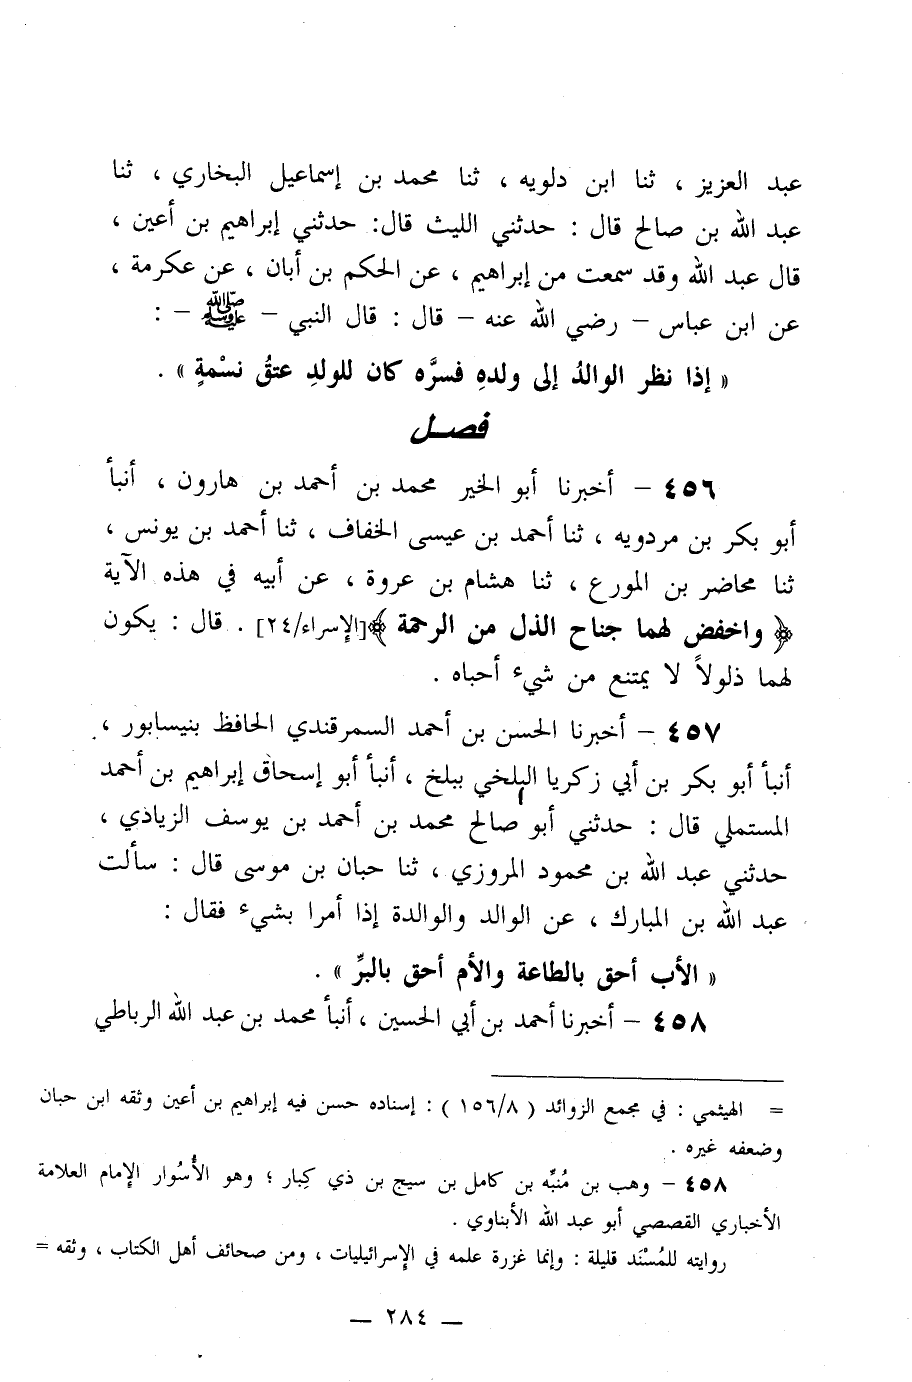 عبد العزيز ، ثنا ابن دلويه ، ثنا محمد بن إسماعيل البخاري ، ثنا
عبد الله بن صالح قال : حدثني الليث قال: حدثني إبراهيم بن أعين ،
قال عبد الله وقد سمعت من إبراهيم ، عن الحكم بن أبان ، عن عكرمة ،
عن ابن عباس – رضي الله عنه – قال : قال النبي – ﷺ – :
« إذا نظر الوالدُ إلى ولدهِ فسرَّه كان للولدِ عتقُ نسْمةٍ » .
فصل
٤٥٦ – أخبرنا أبو الخير محمد بن أحمد بن هارون ، أنبأ
أبو بكر بن مردويه ، ثنا أحمد بن عيسى الخفاف ، ثنا أحمد بن يونس ،
ثنا محاضر بن المورع ، ثنا هشام بن عروة ، عن أبيه في هذه الآية
﴿ واخفض لهما جناح الذل من الرحمة ﴾[الإسراء/٢٤] . قال : يكون
لهما ذلولاً لا يمتنع من شيء أحباه .
٤٥٧ – أخبرنا الحسن بن أحمد السمرقندي الحافظ بنيسابور ،
أنبأ أبو بكر بن أبي زكريا البلخي ببلخ ، أنبأ أبو إسحاق إبراهيم بن أحمد
المستملي قال : حدثني أبو صالح محمد بن أحمد بن يوسف الزياذي ،
حدثني عبد الله بن محمود المروزي ، ثنا حبان بن موسى قال : سألت
عبد الله بن المبارك ، عن الوالد والوالدة إذا أمرا بشيء فقال :
« الأب أحق بالطاعة والأم أحق بالبرِّ » .
٤٥٨ – أخبرنا أحمد بن أبي الحسين ، أنبأ محمد بن عبد الله الرباطي
= الهيثمي : في مجمع الزوائد ( ١٥٦/٨ ) : إسناده حسن فيه إبراهيم بن أعين وثقه ابن حبان
وضعفه غيره .
٤٥٨ – وهب بن مُنبِّه بن كامل بن سيج بن ذي كِبار ؛ وهو الأُسُوار الإمام العلامة
الأخباري القصصي أبو عبد الله الأبناوي .
روايته للمُسْنَد قليلة : وإنما غزرة علمه في الإسرائيليات ، ومن صحائف أهل الكتاب ، وثقه =
– ٢٨٤ –